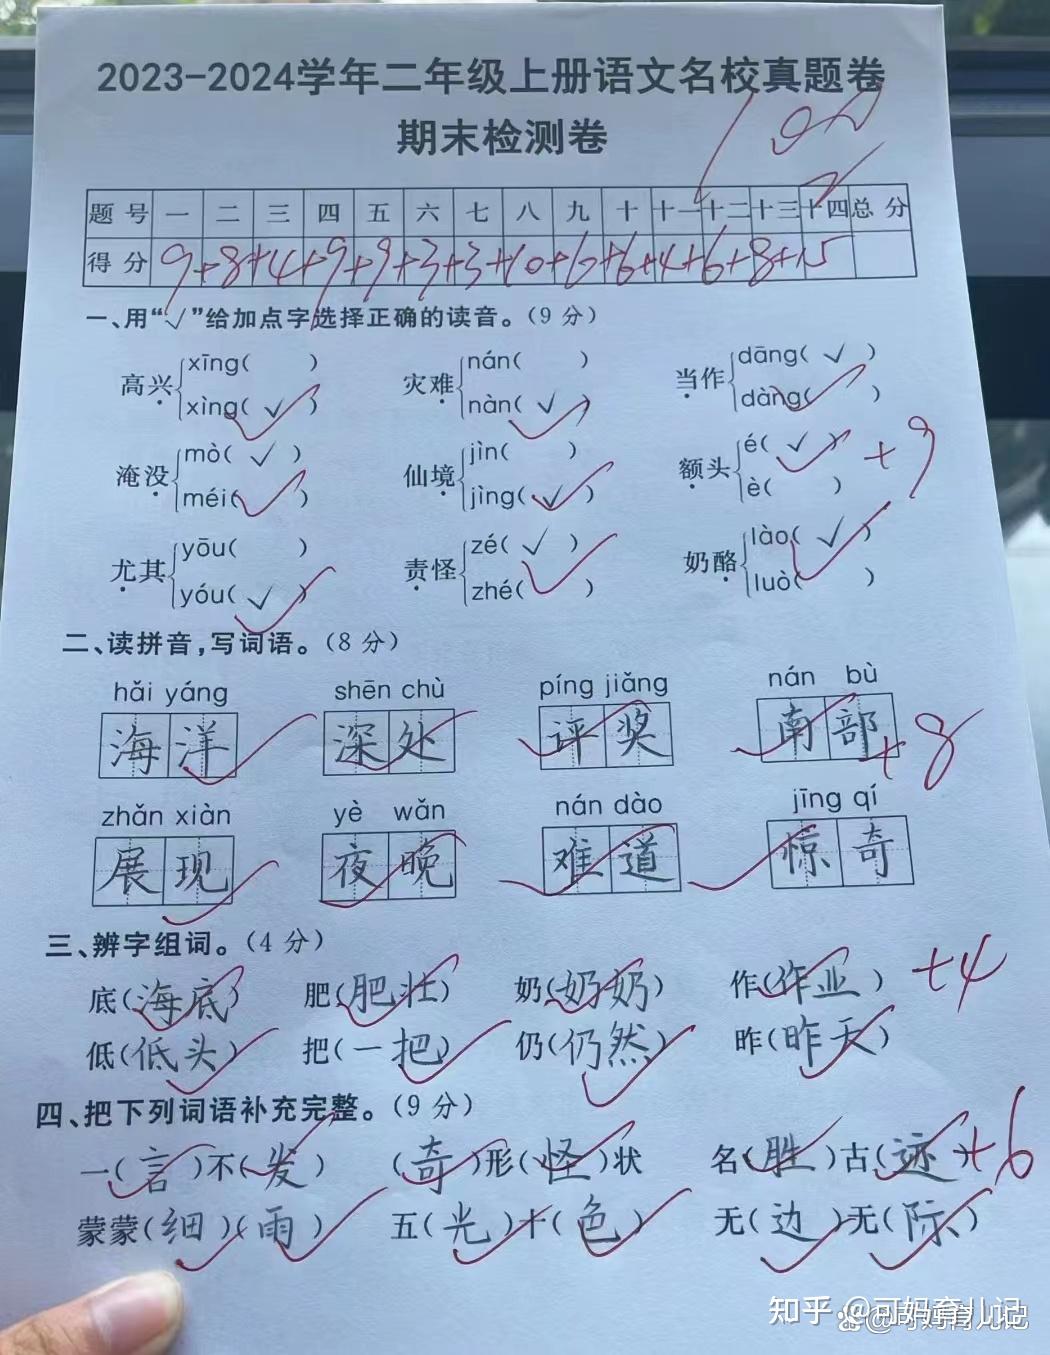 2023-2024学年二年级上册语文名校真题卷
期末检测卷
100
题号 一 二 三 四 五 六 七 八 九 十 十一 十二 十三 十四 总分
得分 9+8+4+9+9+3+3+10+6+6+4+6+8+15
一、用“√”给加点字选择正确的读音。(9分)
高兴 xīng( ) xìng(√) 灾难 nán( ) nàn(√) 当作 dāng(√) dàng( )
淹没 mò(√) méi( ) 仙境 jìn( ) jìng(√) 额头 é(√) è( ) +9
尤其 yōu( ) yóu(√) 责怪 zé(√) zhé( ) 奶酪 lào(√) luò( )
二、读拼音,写词语。(8分)
hǎi yáng shēn chù píng jiǎng nán bù
海洋 深处 评奖 南部 +8
zhǎn xiàn yè wǎn nán dào jīng qí
展现 夜晚 难道 惊奇
三、辨字组词。(4分)
底(海底) 肥(肥壮) 奶(奶奶) 作(作业) +4
低(低头) 把(一把) 仍(仍然) 昨(昨天)
四、把下列词语补充完整。(9分)
一(言)不(发) (奇)形(怪)状 名(胜)古(迹) +6
蒙蒙(细)(雨) 五(光)十(色) 无(边)无(际)
知乎 @可妈育儿记
@可妈育儿记